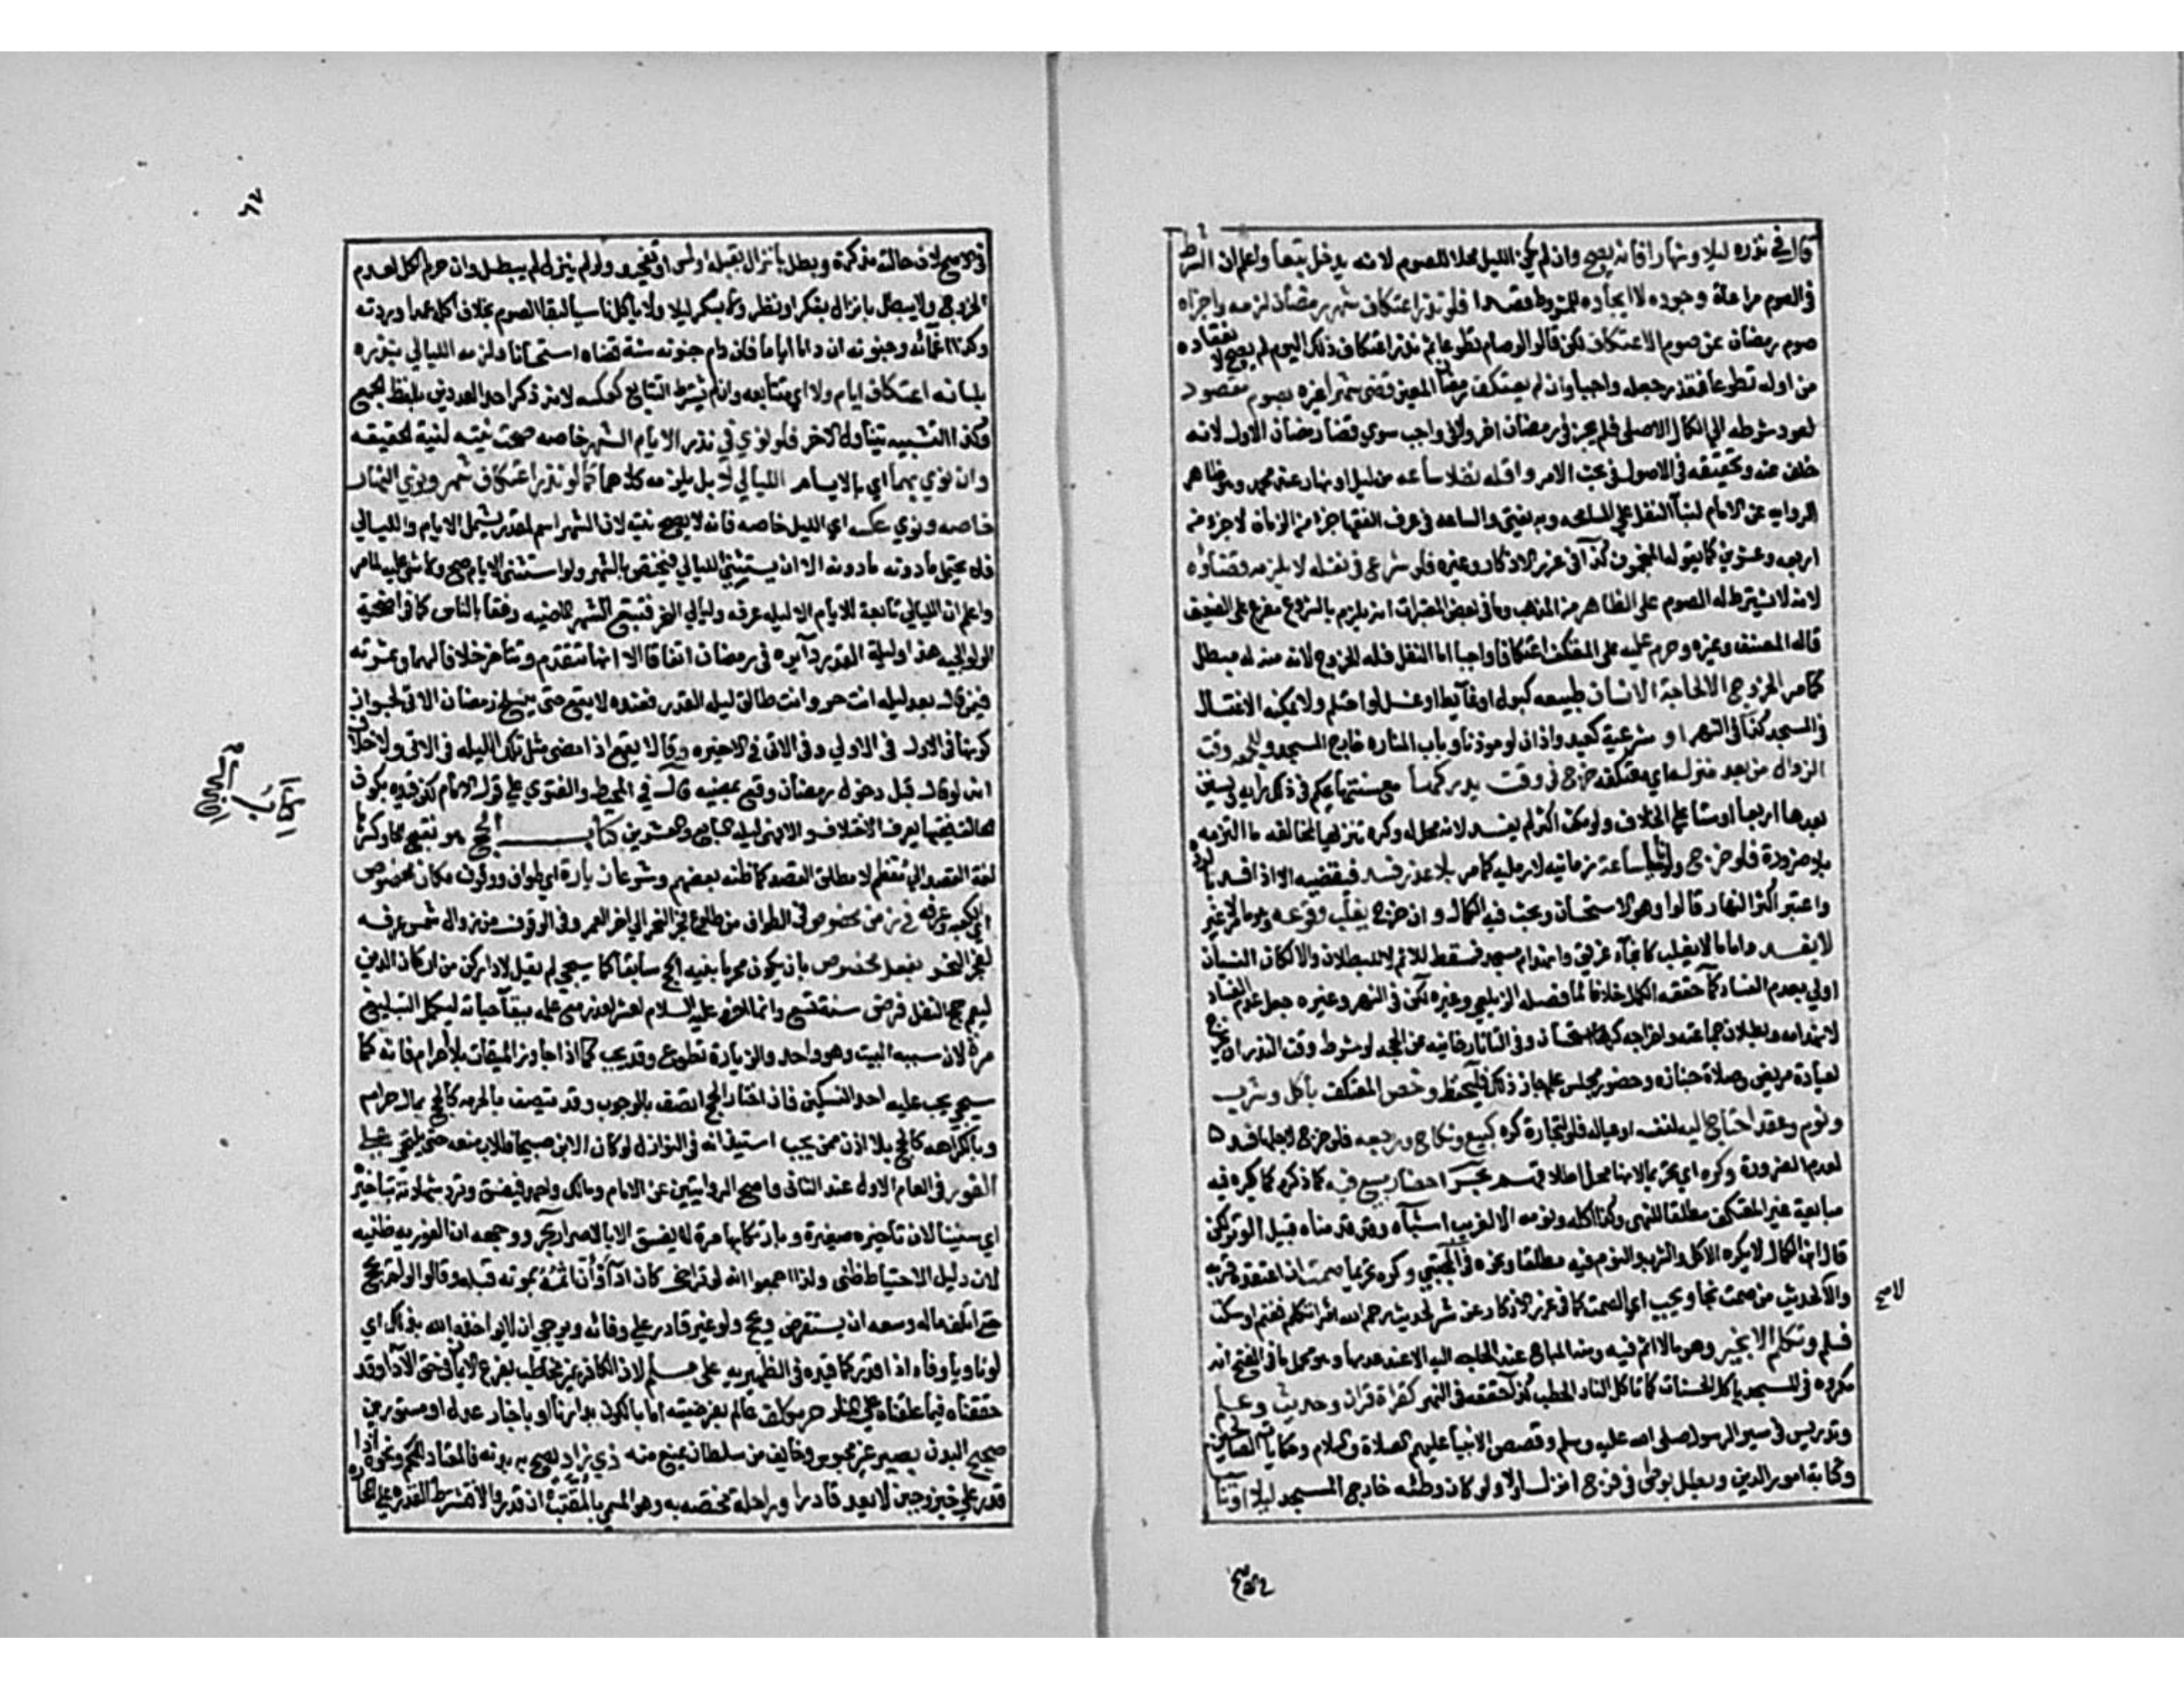 قال في نذره ليلا ونهارا فانه يصح وان لم يكن الليل محلا للصوم لانه يدخل تبعا واعلم ان الشرط
في الصوم مراعاة وجوده لا ايجاده للمشروط قصدا فلو نذر اعتكاف شهر رمضان لزمه واجزاه
صوم رمضان عن صوم الاعتكاف لكن قالوا لو صام تطوعا ثم نذر اعتكاف ذلك اليوم لم يصح لا نعقاده
من اوله تطوعا فتعذر جعله واجبا وان لم يعتكف رمضان المعين قضى شهرا غيره بصوم مقصود
لعود شرطه الي الكمال الاصلي فلم يجز في رمضان اخر ولا في واجب سوي قضا رمضان الاول لانه
خلف عنه وتحقيقه في الاصول في بحث الامر واقله نفلا ساعه من ليل او نهار عند محمد وهو ظاهر
الروايه عن الامام لبنآ النفل علي المسامحه وبه يفتي والساعه في عرف الفقها جزء من الزمان لا جزء من
اربعه وعشرين كما يقوله المنجمون كذا في غرر الاذكار وغيره فلو شرع في نفله لا يلزمه قضاؤه
لانه لا يشترط له الصوم علي الظاهر من المذهب وما في بعض المعتبرات انه يلزم بالشروع مفرع علي الضعيف
قاله المصنف وغيره وحرم عليه علي المعتكف اعتكافا واجبا اما النفل فله الخروج لانه منه له مبطل
كما مر الخروج الا لحاجة الانسان طبيعه كبول او غآيط او غسل لو احتلم ولا يمكنه الاغتسال
في المسجد كذا في النهر او شرعية كعيد واذان لو موذنا وباب المناره خارج المسجد والجمعه وقت
الزوال من بعد منزله اي معتكفه خرج في وقت يدركها مع سنتها يحكم في ذلك رايه ويستن
بعدها اربعا او ستا علي الخلاف ولو مكث اكثر لم يفسد لانه محل له وكره تنزيها لمخالفه ما التزمه
بلا ضرورة فلو خرج ولو ناسيا ساعة زمانيه لا رمليه كما مر بلا عذر فسد فيقضيه الا اذا افسده بالرده
واعتبر اكثر النهار قالوا وهو الاستحسان وبحث فيه الكمال وان خرج بعذر يغلب وقوعه وهو ما مر لا غير
لا يفسد واما ما لا يغلب كانجآء غريق وانهدام مسجد فمسقط للاثم لا للبطلان والا لكان النسيان
اولي بعدم الفساد كما حققه الكمال خلافا لما فصله الزيلعي وغيره لكن في النهر وغيره جعل عدم الفساد
لانهدامه وبطلان جماعته واخراجه كرها استحسانا وفي التاتارخانيه عن الحجه لو شرط وقت النذر ان يخرج
لعيادة مريض وصلاة جنازه وحضور مجلس علم جاز ذلك فليحفظ وخص المعتكف باكل وشرب
ونوم وعقد احتاج اليه لنفسه او عياله فلو لتجارة كره كبيع ونكاح ورجعه فلو خرج لاجلها فسد
لعدم الضرورة وكره اي تحريما لانها محل اطلاقهم بحر احضار مبيع فيه كما ذكره كما يكره فيه
مبايعة غير المعتكف مطلقا للنهي وكذا اكله ونومه الا لغريب اشباه وقد قدمناه قبيل الوتر لكن
قال ابن الكمال لا يكره الاكل والشرب والنوم فيه مطلقا ونحوه في المجتبي وكره تحريما صمت ان اعتقده قربة
والا لا لحديث من صمت نجا ويجب اي الصمت كما في غرر الاذكار عن شر لحديث رحم الله امرا تكلم فغنم او سكت
فسلم وتكلم الا بخير وهو ما لا اثم فيه ومنه المباح عند الحاجه اليه لا عند عدمها وهو محمل ما في الفتح انه
مكروه في المسجد ياكل الحسنات كما تاكل النار الحطب كما حققه في النهر كقراة قران وحديث وعلم
وتدريس في سير الرسول صلي الله عليه وسلم وقصص الانبيا عليهم الصلاة والسلام وحكايات الصالحين
وكتابة امور الدين وبطل بوطي في فرج انزل ام لا ولو كان وطئه خارج المسجد ليلا او نهارا
لا صح
٦٧
في الاصح لان حالته مذكرة وبطل بانزال بقبله او لمس او تفخيذ ولو لم ينزل لم يبطل وان حرم الكل لعدم
الحرج ولا يبطل بانزال بفكر او نظر ولا بسكر ليلا ولا باكل ناسيا لبقا الصوم بخلاف اكله عمدا وردته
وكذا اغمائه وجنونه ان داما اياما فان دام جنونه سنة قضاه استحسانا ولزمه الليالي بنذره
بلسانه اعتكاف ايام ولاء اي متتابعه وان لم يشترط التتابع كعكسه لان ذكر احد العددين بلفظ الجمع
وكذا التثنيه يتناول الاخر فلو نوي في نذر الايام النهر خاصه صحت نيته لنية الحقيقه
وان نوي بها اي بالايام الليالي لا بل يلزمه كلاهما كما لو نذر اعتكاف شهر ونوي النهار
خاصه ونوي عكسه اي الليل خاصه فانه لا يصح نيته لان الشهر اسم لمقدر يشمل الايام والليالي
فلا يحتمل ما دونه الا ان يستثني الليالي فيختص بالنهر ولو استثني الايام صح ولا شي عليه لما مر
واعلم ان الليالي تابعة للايام الا ليله عرفه وليالي النحر فتتبع النهر الماضيه رفقا بالناس كما في اضحية
الولوالجيه هذا وليلة القدر دآيره في رمضان اتفاقا الا انها تتقدم وتتاخر خلافا لهما وثمرته
فيمن قال بعد ليله انت حر او انت طالق ليله القدر فعنده لا يقع حتي ينسلخ رمضان الاتي لجواز
كونها في الاول في الاولي وفي الاتي في الاخيره وقالا يقع اذا مضي مثل تلك الليله في الاتي ولا خلاف
انه لو قال قبل دخول رمضان وقع بمضيه قال في المحيط والفتوي علي قول الامام لكن قيده بكون
الحالف فقيها يعرف الاختلاف والا فهي ليله السابع والعشرين كتاب الحج هو بفتح الحا وكسرها
لغة القصد الي معظم لا مطلق القصد كما ظنه بعضهم وشرعا زيارة اي طواف ووقوف مكان مخصوص
اي الكعبه وعرفه في زمن مخصوص في الطواف من طلوع فجر النحر الي اخر العمر وفي الوقوف من زوال شمس عرفه
لفجر النحر بفعل مخصوص بان يكون محرما بنيه الحج سابقا كما سيجي لم يقل لاداء ركن من اركان الدين
ليعم حج النفل فرض سنة تسع وانما اخره عليه السلام لعشر لعذر مع علمه ببقآ حياته ليكمل التبليغ
مرة لان سببه البيت وهو واحد والزيادة تطوع وقد يجب كما اذا جاوز الميقات بلا احرام فانه كما
سيجي يجب عليه احد النسكين فان اختار الحج اتصف بالوجوب وقد يتصف بالحرمه كالحج بمال حرام
وبالكراهه كالحج بلا اذن ممن يجب استيذانه في النوازل لو كان الابن صبيحا فللاب منعه حتي يلتحي علي
الفور في العام الاول عند الثاني واصح الروايتين عن الامام ومالك واحمد فيفسق وترد شهادته بتاخيره
اي سنينا لان تاخيره صغيرة وبارتكابها مرة لا يفسق الا بالاصرار بحر ووجهه ان الفوريه ظنيه
لان دليل الاحتياط ظني ولذا اجمعوا انه لو تراخي كان ادآء وان اثم بموته قبله وقالوا لو لم يحج
حتي اتلف ماله وسعه ان يستقرض ويحج ولو غير قادر علي وفائه ويرجي ان لا يواخذه الله بذلك اي
لو ناويا وفاء اذا قدر كما قيده في الظهيريه علي مسلم لان الكافر غير مخاطب بفروع الايمان في حق الادآ وقد
حققناه فيما علقناه علي المنار حر مكلف عالم بفرضيته اما بالكون بدارنا او باخبار عدل او مستورين
صحيح البدن بصير غير محبوس وخايف من سلطان يمنع منه ذي زاد يصح به بدنه فالمعتاد اللحم ونحوه اذا
قدر علي خبز وجبن لا يعد قادرا وراحلة مختصه به وهو المسمي بالمقتب ان قدر والا فتشرط القدره علي المحاره
كتاب الحج